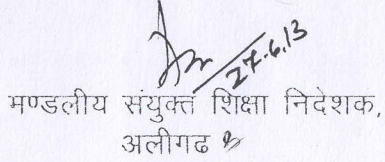 27.6.13
मण्डलीय संयुक्त शिक्षा निदेशक,
अलीगढ